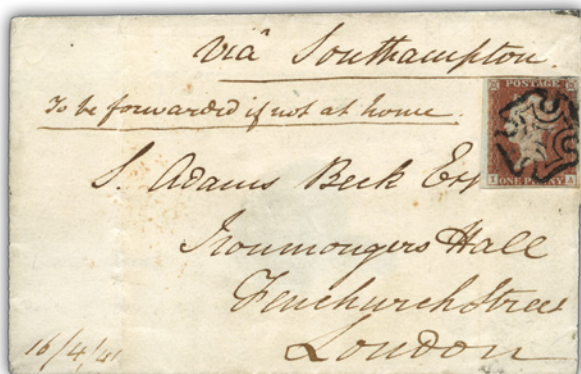 Viâ Southampton.
To be forwarded if not at home.
POSTAGE
S. Adams Beck Esq
ONE PENNY
A
Ironmongers Hall
Fenchurch Street
London
16/4/41